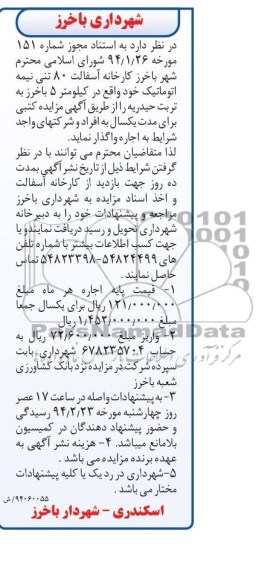 شهرداری باخرز
در نظر دارد به استناد مجوز شماره ۱۵۱
مورخه ۹۴/۱/۲۶ شورای اسلامی محترم
شهر باخرز کارخانه آسفالت ۸۰ تنی نیمه
اتوماتیک خود واقع در کیلومتر ۵ باخرز به
تربت حیدریه را از طریق آگهی مزایده کتبی
برای مدت یکسال به افراد و شرکتهای واجد
شرایط به اجاره واگذار نماید.
لذا متقاضیان محترم می توانند با در نظر
گرفتن شرایط ذیل از تاریخ نشر آگهی بمدت
ده روز جهت بازدید از کارخانه آسفالت
و اخذ اسناد مزایده به شهرداری باخرز
مراجعه و پیشنهادات خود را به دبیرخانه
شهرداری تحویل و رسید دریافت نمایند و یا
جهت کسب اطلاعات بیشتر با شماره تلفن
های ۵۴۸۲۴۴۹۹-۵۴۸۲۳۳۹۸ تماس
حاصل نمایند .
۱- قیمت پایه اجاره هر ماه مبلغ
۱۲۱/۰۰۰/۰۰۰ ریال برای یکسال جمعا
مبلغ ۱/۴۵۲/۰۰۰/۰۰۰ ریال
۲- واریز مبلغ ۷۲/۶۰۰/۰۰۰ ریال به
حساب ۶۷۸۲۳۵۷۰۴ شهرداری بابت
سپرده شرکت در مزایده نزد بانک کشاورزی
شعبه باخرز
۳- به پیشنهادات واصله در ساعت ۱۷ عصر
روز چهارشنبه مورخه ۹۴/۲/۲۳ رسیدگی
و حضور پیشنهاد دهندگان در کمیسیون
بلامانع میباشد. ۴- هزینه نشر آگهی به
عهده برنده مزایده می باشد .
۵-شهرداری در رد یک یا کلیه پیشنهادات
مختار می باشد .
۹۴۰۶۰۰۵۵/ ش
اسکندری - شهردار باخرز